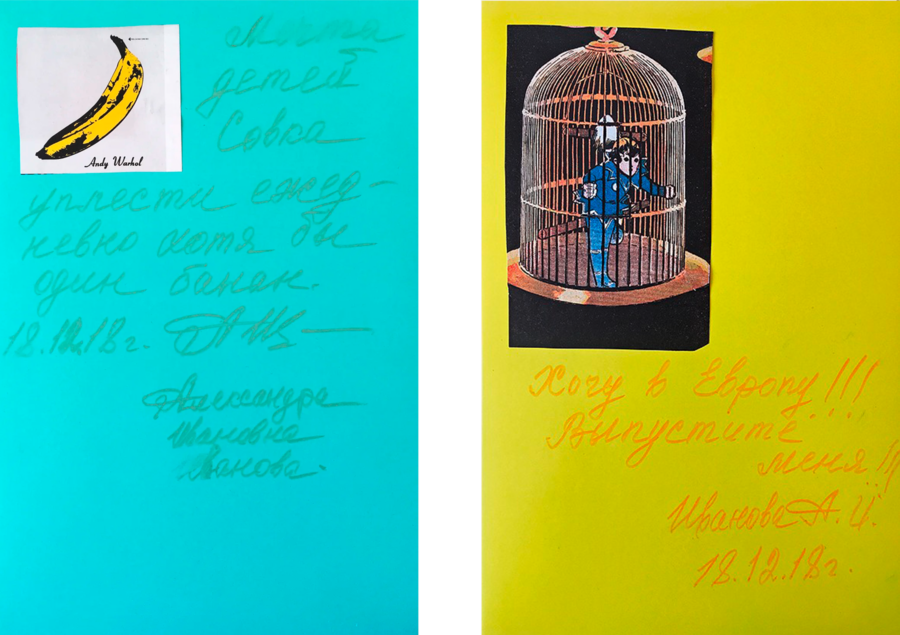 Andy Warhol
Мечта
детей
Совка
уплести ежед-
невно хотя бы
один банан.
18.12.18г.
Александра
Ивановна
Иванова.
Хочу в Европу!!!
Выпустите
меня!!!
Иванова А. И.
18.12.18г.